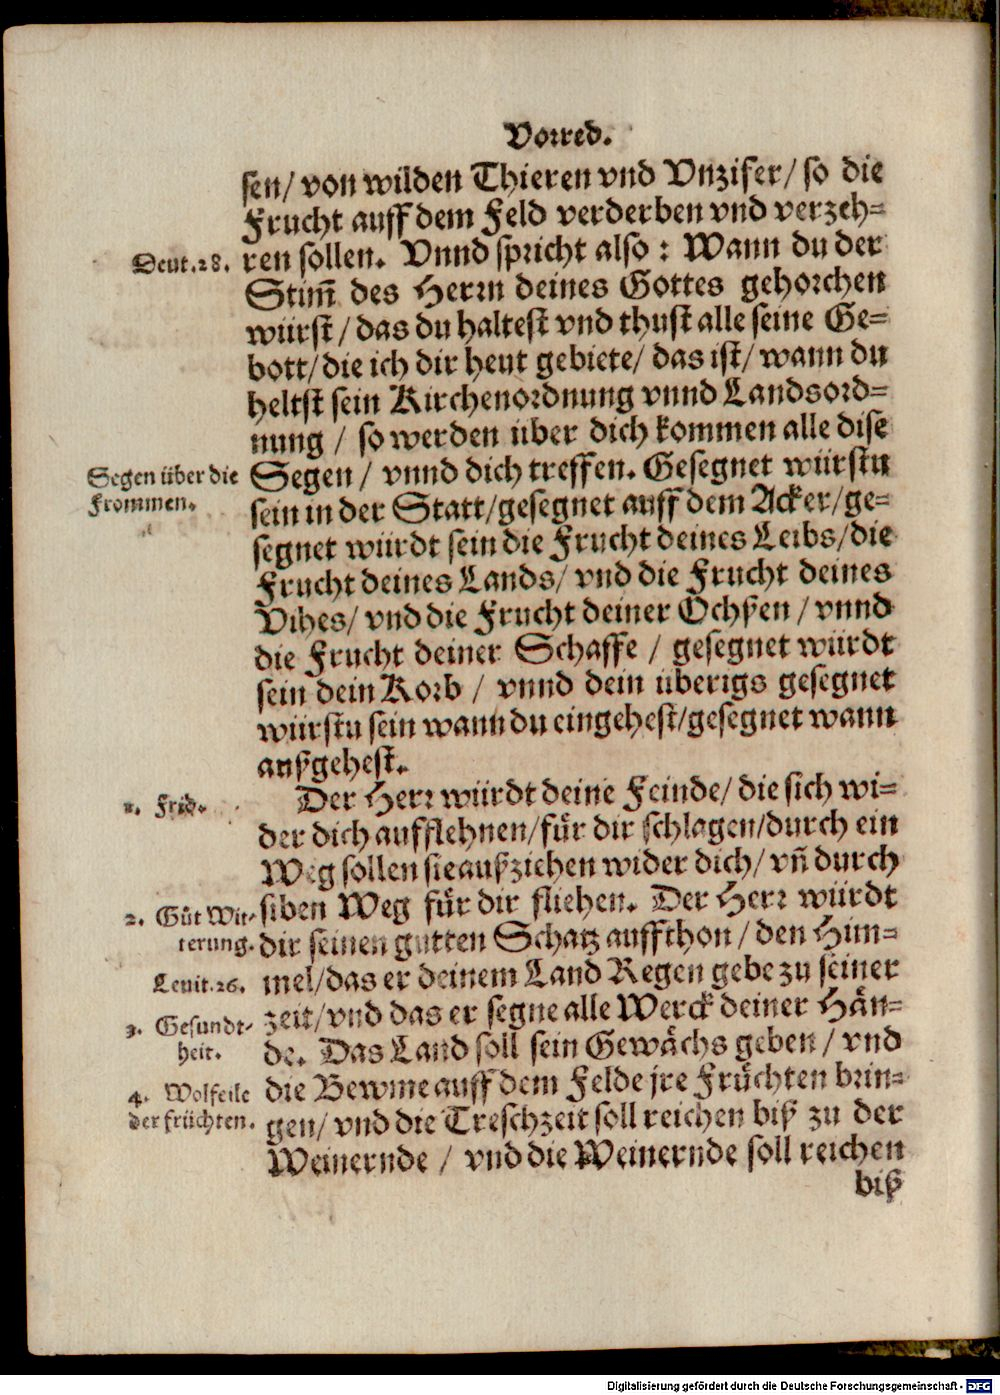 Vorred.
sen/ von wilden Thieren vnd Vnzifer/ so die
Frucht auff dem Feld verderben vnd verzeh=
Deut.28.
ren sollen. Vnnd spricht also: Wann du der
Stim̃ des Herrn deines Gottes gehorchen
würst/ das du haltest vnd thust alle seine Ge=
bott/ die ich dir heut gebiete/ das ist/ wann du
heltst sein Kirchenordnung vnnd Landsord=
nung / so werden über dich kommen alle dise
Segen über die
Frommen.
Segen/ vnnd dich treffen. Gesegnet würstu
sein in der Statt/gesegnet auff dem Acker/ge=
segnet würdt sein die Frucht deines Leibs/die
Frucht deines Lands/ vnd die Frucht deines
Vihes/ vnd die Frucht deiner Ochßen / vnnd
die Frucht deiner Schaffe / gesegnet würdt
sein dein Korb / vnnd dein überigs gesegnet
würstu sein wann du eingehest/gesegnet wann
außgehest.
1. Frid.
Der Herr würdt deine Feinde/ die sich wi=
der dich aufflehnen/für dir schlagen/durch ein
Weg sollen sie außziehen wider dich/ vñ durch
2. Gůt Wit-
terung.
siben Weg für dir fliehen. Der Herr würdt
dir seinen gutten Schatz auffthon/ den Him=
Leuit.26.
mel/das er deinem Land Regen gebe zu seiner
3. Gesundt-
heit.
zeit/vnd das er segne alle Werck deiner Hän=
de. Das Land soll sein Gewächs geben/ vnd
4. Wolfeile
der früchten.
die Bewme auff dem Felde jre Früchten brin=
gen/ vnd die Treschzeit soll reichen biß zu der
Weinernde / vnd die Weinernde soll reichen
biß
Digitalisierung gefördert durch die Deutsche Forschungsgemeinschaft - DFG